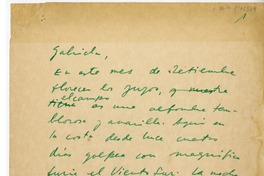 1
Gabriela,
En este mes de Setiembre
florecen los yuyos, y nuestra
el campo
tiene es una alfombra tem-
blorosa y amarilla. Aquí en
la costa desde hace cuatro
días golpea con magnífica
furia el Viento Sur. La noche